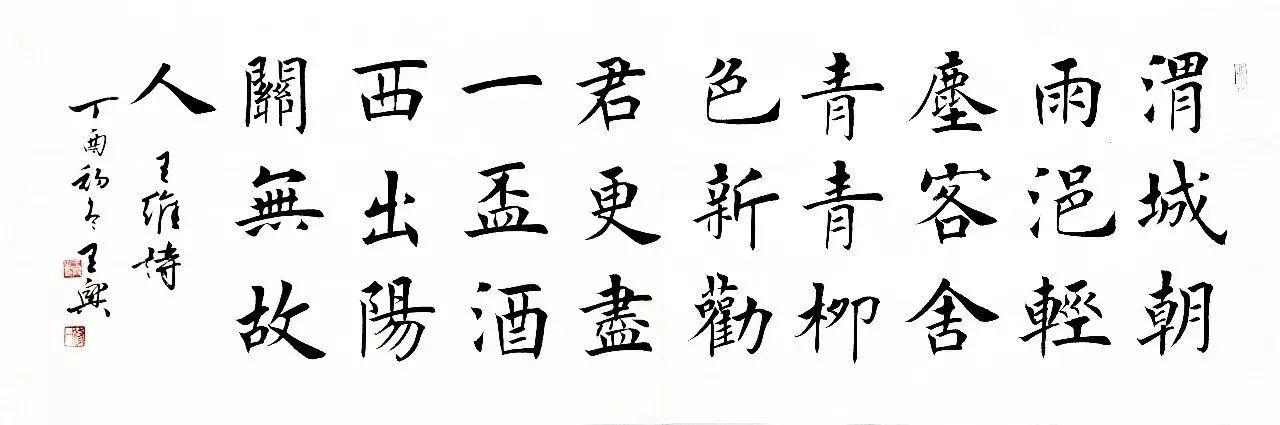 渭城朝
雨浥輕
塵客舍
青青柳
色新勸
君更盡
一盃酒
西出陽
關無故
人 王維詩
丁酉初冬 王興